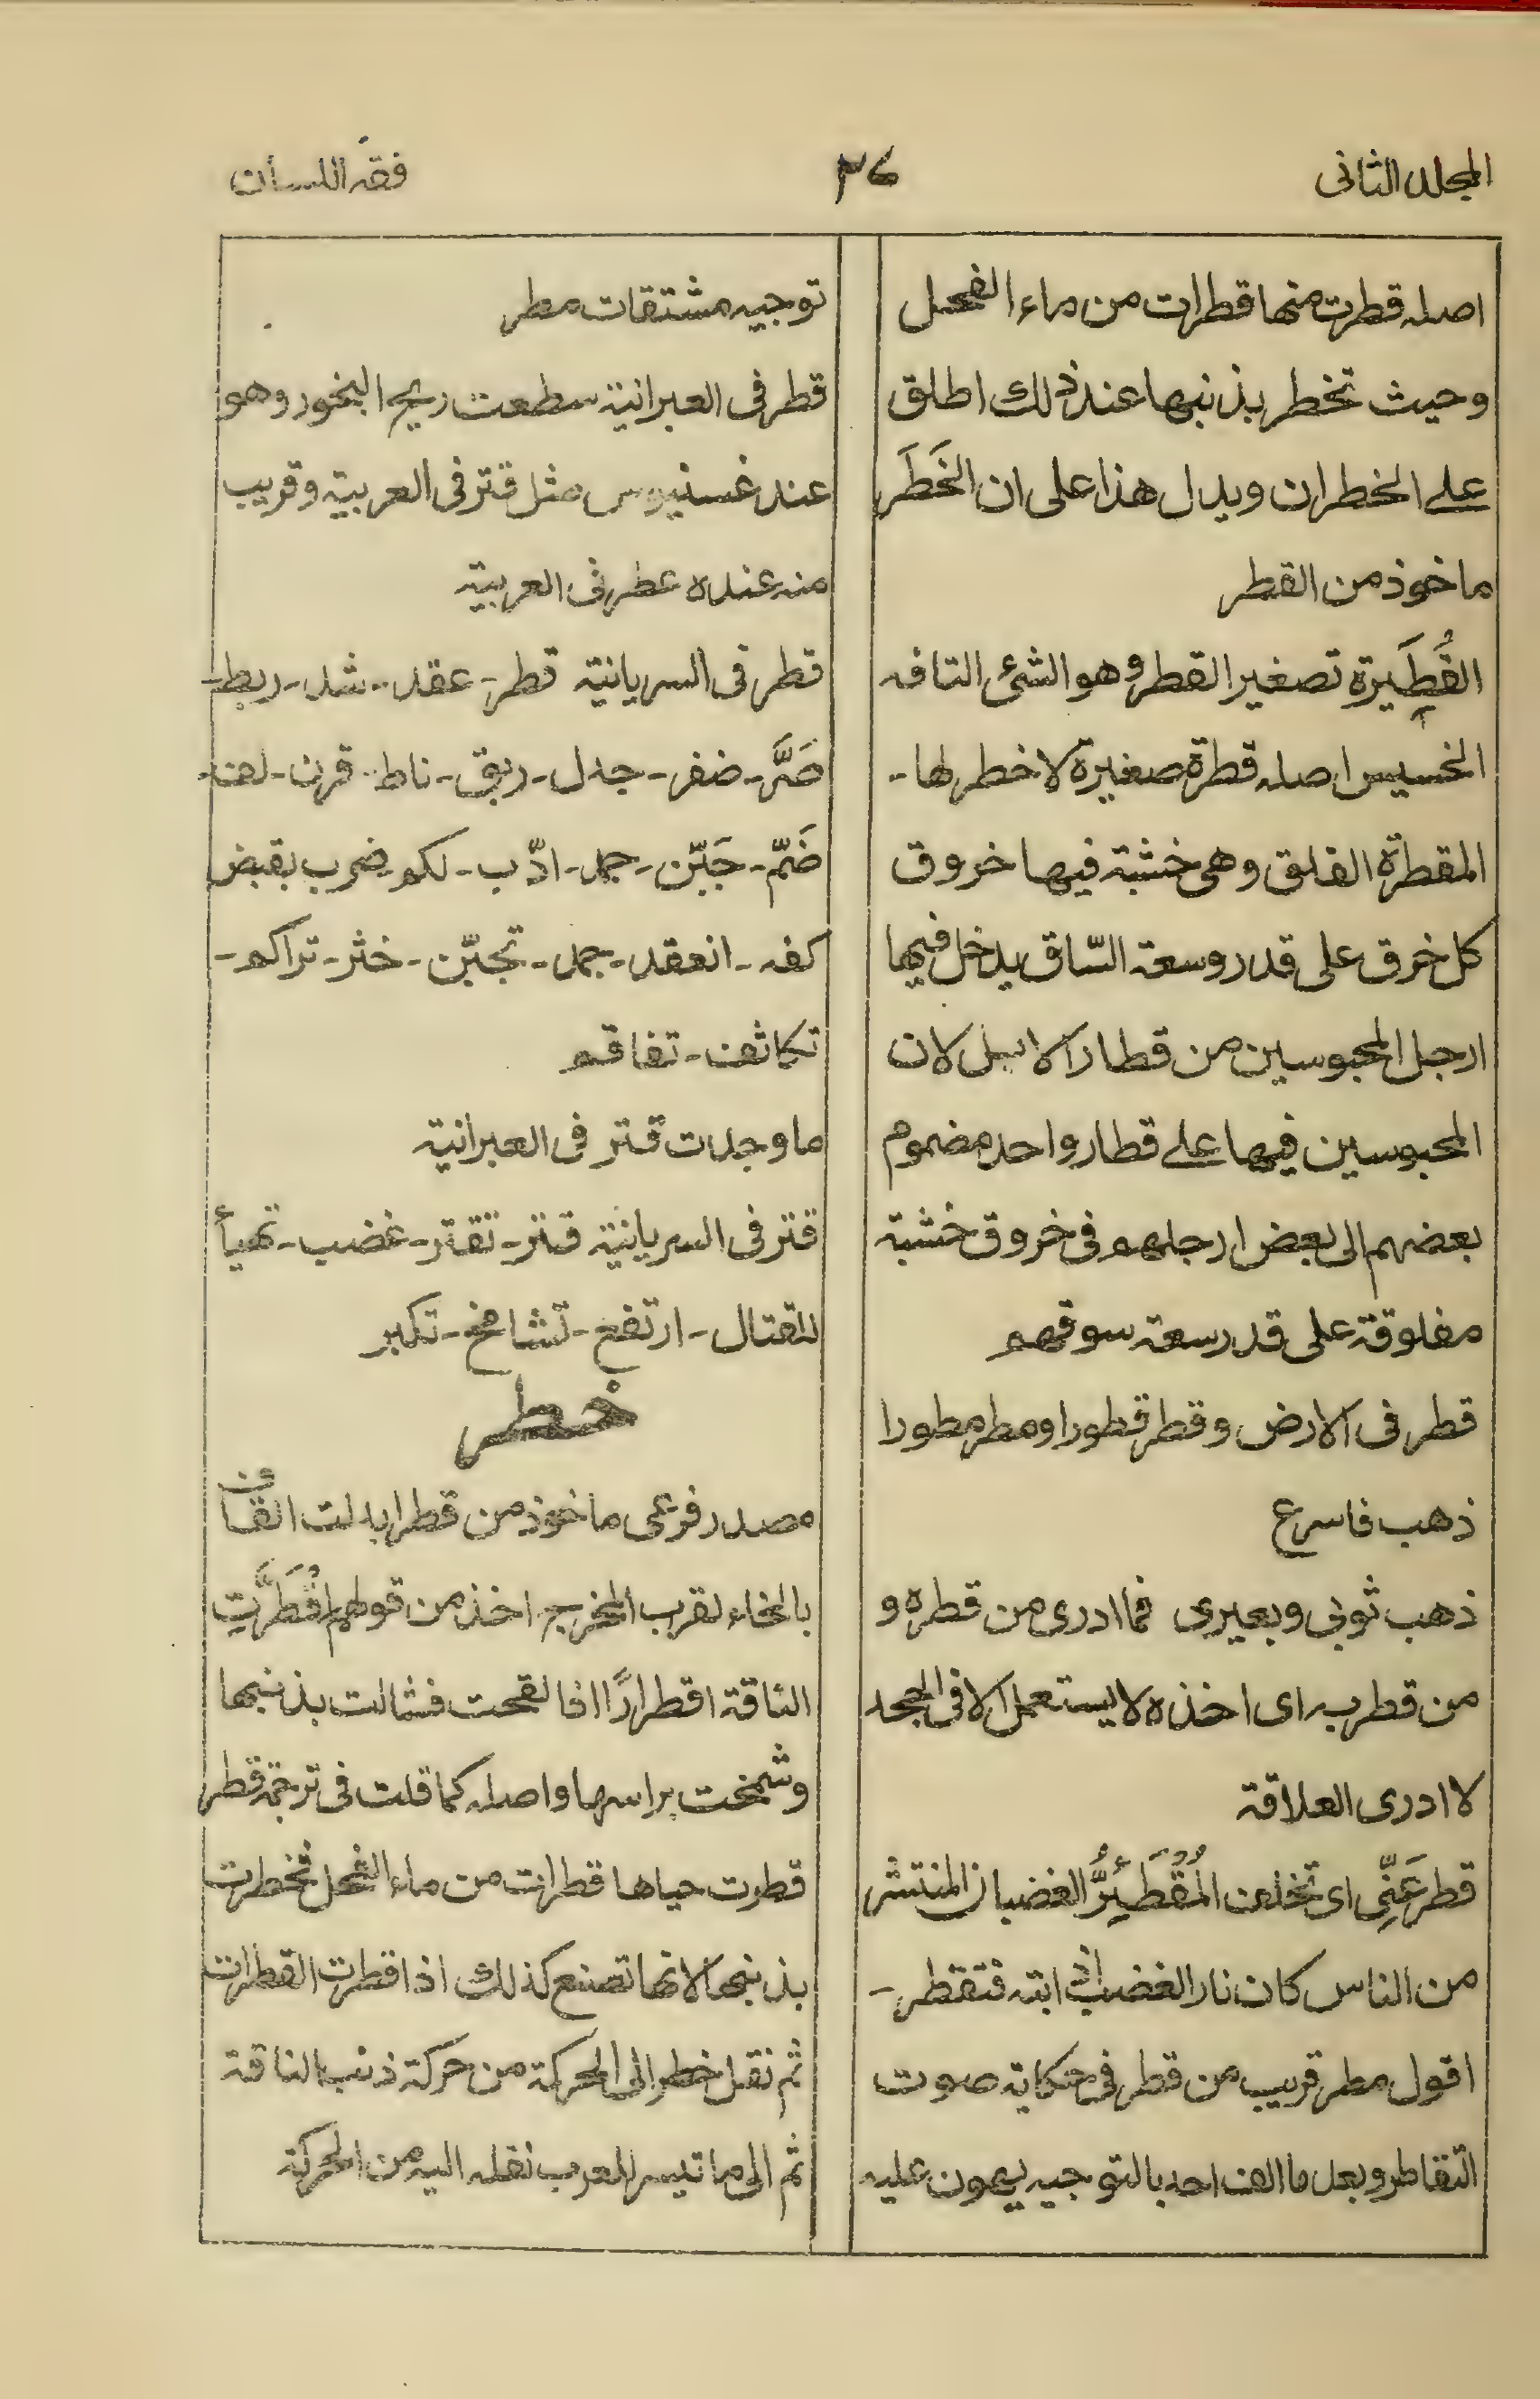 المجلد الثانى
٣٤
فقه اللسان
اصله قطرت منها قطرات من ماء الفحل
وحيث تخطر بذنبها عند ذلك اطلق
على الخطران ويدل هذا على ان الخَطَر
ماخوذ من القطر
القُطَيرة تصغير القطر وهو الشئ التافه
الخسيس اصله قطرة صغيرة لا خطر لها -
المقطرة الفلق وهى خشبة فيها خروق
كل خرق على قدر وسعة السّاق يدخل فيها
ارجل المحبوسين من قطار الابل لان
المحبوسين فيها على قطار واحد مضموم
بعضهم الى بعض ارجلهم فى خروق خشبة
مفلوقة على قدر سعة سوقهم
قطر فى الارض وقطر قطورا ومطر مطورا
ذهب فاسرع
ذهب ثوبى وبعيرى فما ادرى من قطره و
من قطر به اى اخذه لا يستعمل الا فى الجحد
لا ادرى العلاقة
قطر عَنّى اى تخلف المُقْطَئِرُّ الغضبان المنتشر
من الناس كان نار الغضب اذابته فتقطر -
اقول مطر قريب من قطر فى حكاية صوت
التقاطر وبعد ما الف احد بالتوجيه يهون عليه
توجيه مشتقات مطر
قطر فى العبرانية سطعت ريح البخور وهو
عند غسنيوس مثل قتر فى العربية وقريب
منه عنده عطر فى العربية
قطر فى السريانية قطر - عقد - شد - ربط -
صَرَّ - ضفر - جدل - ربق - ناط - قرن - لف -
ضَمّ - جَبّن - جمد - ادّب - لكم ضرب بقبض
كفه - انعقد - جمد - تجبّن - خثر - تراكم -
تكاثف - تفاقم
ما وجدت قتر فى العبرانية
قتر فى السريانية قتر - تقتر - غضب - تهيأ
للقتال - ارتفع - تشامخ - تكبر
خطر
مصدر فرعى ماخوذ من قطر ابدلت القاف
بالخاء لقرب المخرج اخذ من قولهم اقْطَرَّتِ
الناقة اقطرارًا اذا لقحت فشالت بذنبها
وشمخت براسها واصله كما قلت فى ترجمة قطر
قطرت حياها قطرات من ماء الفحل تخطرت
بذنبها لانها تصنع كذلك اذا قطرت القطرات
ثم نقل خطر الى الحركة من حركة ذنب الناقة
ثم الى ما تيسر للعرب نقله اليه من الحركة